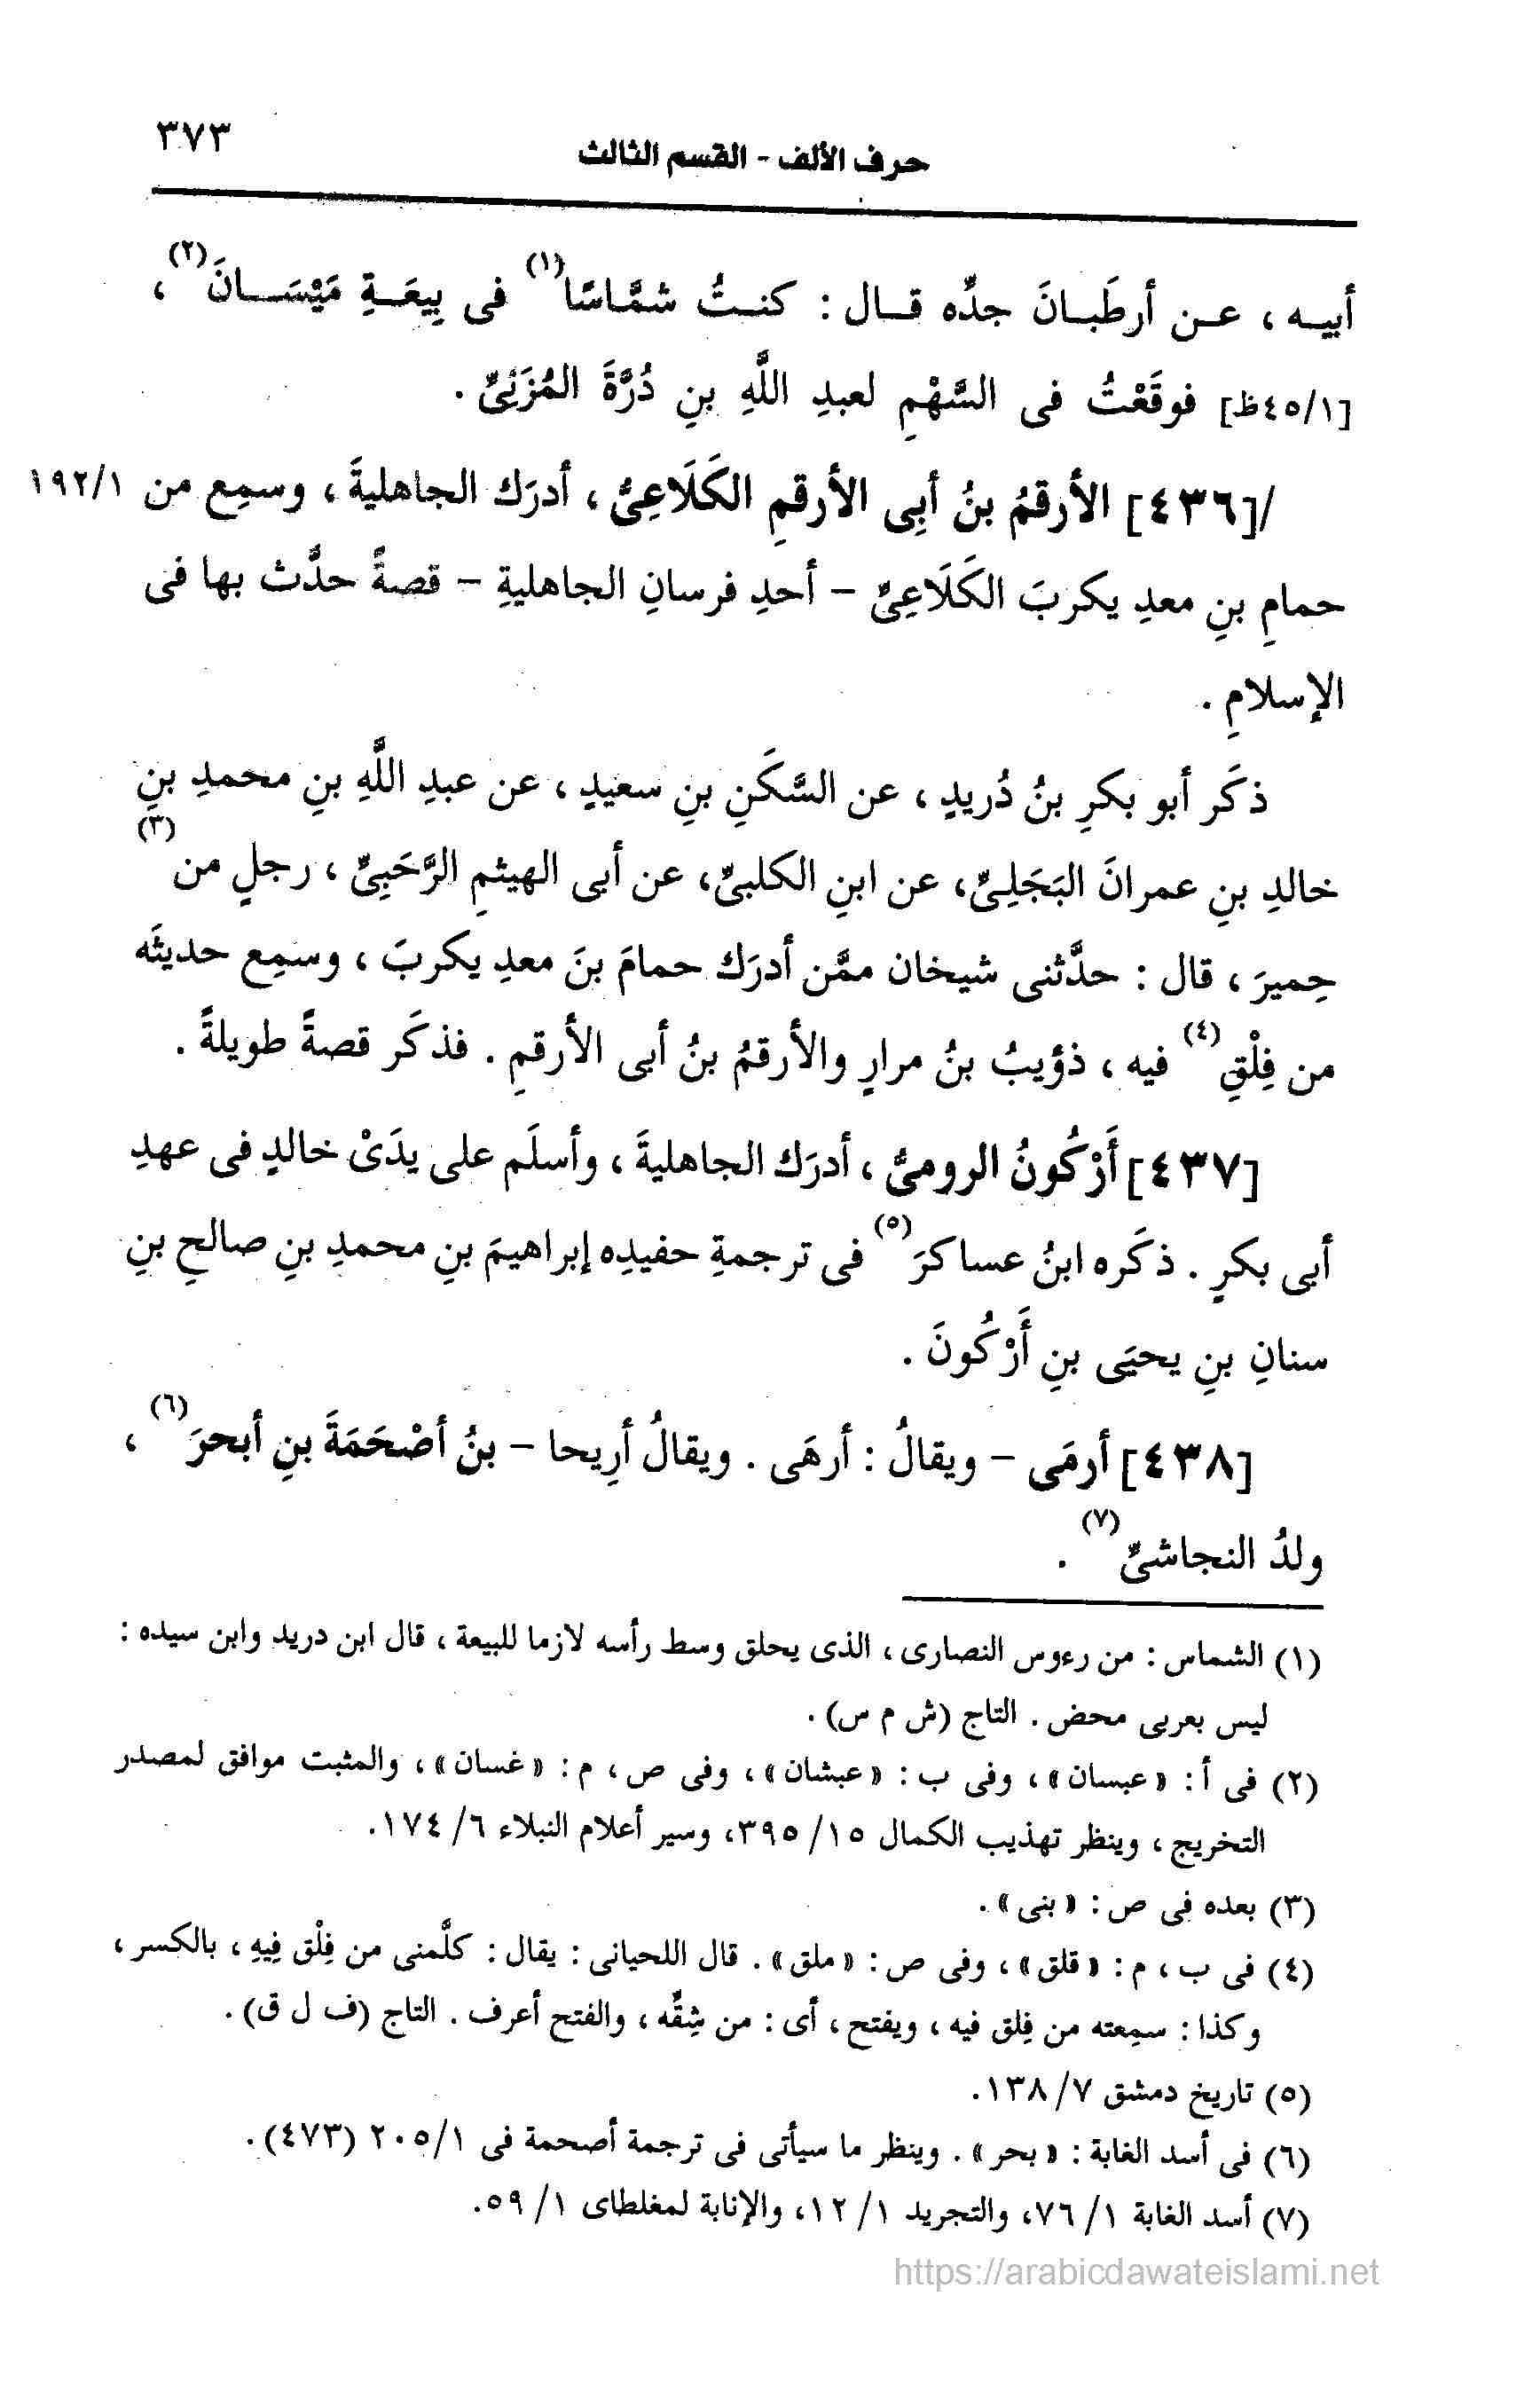 ٣٧٣
حرف الألف - القسم الثالث
أبيه ، عن أرطَبانَ جدِّه قال : كنتُ شمَّاسًا(١) فى بِيعَةِ مَيْسَانَ(٢) ،
[٤٥/١ظ] فوقَعْتُ فى السَّهْمِ لعبدِ اللَّهِ بنِ دُرَّةَ المُزَنِىِّ .
/[٤٣٦] الأرقمُ بنُ أبِى الأرقمِ الكَلَاعِىُّ ، أدرَك الجاهليةَ ، وسمِع من ١٩٢/١
حمامِ بنِ معدِ يكربَ الكَلَاعِىِّ - أحدِ فرسانِ الجاهليةِ - قصةً حدَّث بها فى
الإسلامِ .
ذكَر أبو بكرِ بنُ دُريدٍ ، عن السَّكَنِ بنِ سعيدٍ ، عن عبدِ اللَّهِ بنِ محمدِ بنِ
خالدِ بنِ عمرانَ البَجَلِىِّ، عن ابنِ الكلبىِّ، عن أبى الهيثمِ الرَّحَبِىِّ ، رجلٍ من(٣)
حِميرَ ، قال : حدَّثنى شيخان ممَّن أدرَك حمامَ بنَ معدِ يكربَ ، وسمِع حديثَه
من فِلْقِ(٤) فيه ، ذؤيبُ بنُ مرارٍ والأرقمُ بنُ أبى الأرقمِ . فذكَر قصةً طويلةً .
[٤٣٧] أَرْكُونُ الرومىُّ ، أدرَك الجاهليةَ ، وأسلَم على يدَىْ خالدٍ فى عهدِ
أبى بكرٍ . ذكَره ابنُ عساكرَ(٥) فى ترجمةِ حفيدِه إبراهيمَ بنِ محمدِ بنِ صالحِ بنِ
سنانِ بنِ يحيَى بنِ أَرْكُونَ .
[٤٣٨] أرمَى - ويقالُ : أرهَى . ويقالُ أرِيحا - بنُ أصْحَمَةَ بنِ أبحرَ(٦) ،
ولدُ النجاشىِّ(٧) .
(١) الشماس : من رءوس النصارى ، الذى يحلق وسط رأسه لازما للبيعة ، قال ابن دريد وابن سيده :
ليس بعربى محض . التاج (ش م س) .
(٢) فى أ : « عبسان » ، وفى ب : « عبشان » ، وفى ص ، م : « غسان » ، والمثبت موافق لمصدر
التخريج ، وينظر تهذيب الكمال ١٥/ ٣٩٥، وسير أعلام النبلاء ٦/ ١٧٤.
(٣) بعده فى ص : « بنى » .
(٤) فى ب ، م : « قلق » ، وفى ص : « ملق » . قال اللحيانى : يقال : كلَّمنى من فِلْق فِيهِ ، بالكسر ،
وكذا : سمِعته من فِلق فيه ، ويفتح ، أى : من شِقِّه ، والفتح أعرف . التاج (ف ل ق) .
(٥) تاريخ دمشق ٧/ ١٣٨.
(٦) فى أسد الغابة : « بحر » . وينظر ما سيأتى فى ترجمة أصحمة فى ٢٠٥/١ (٤٧٣).
(٧) أسد الغابة ١/ ٧٦، والتجريد ١/ ١٢، والإنابة لمغلطاى ١/ ٥٩.
https://arabicdawateislami.net